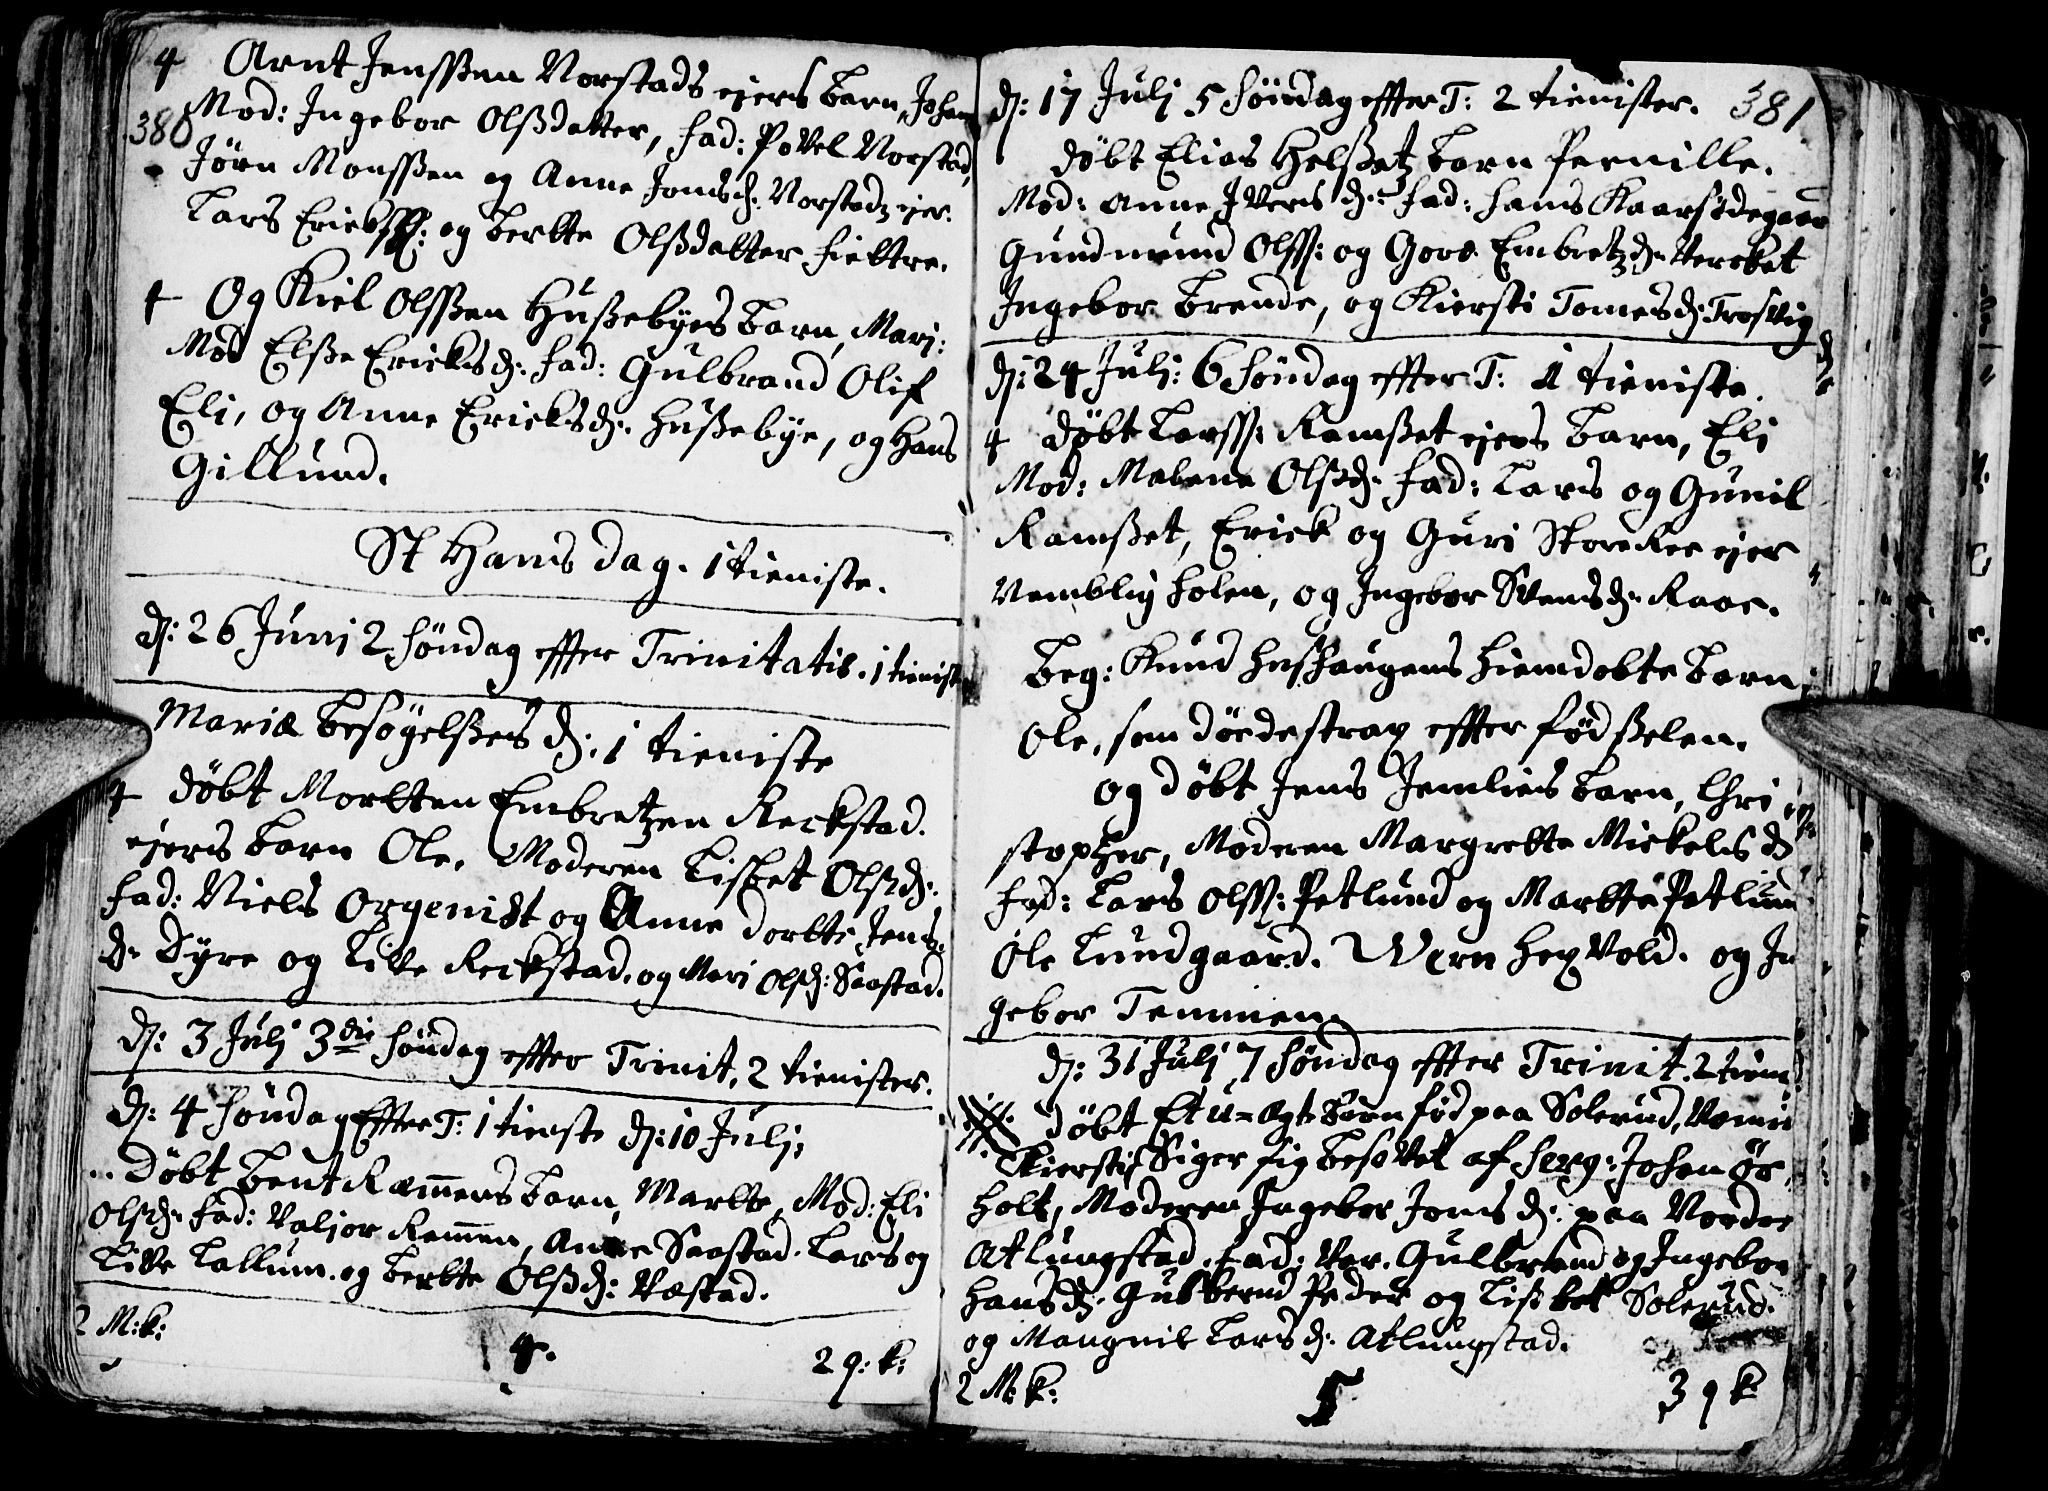 4 Arnt Jenssen Norstads ejers barn, Johan
380
Mod: Ingebor Olsdatter, fad: Povel Norstad,
Jörn Monssen og Anne Jonsd: Norstadz ejer.
Lars Erichss: og Berthe Olsdatter fieltre.
4 Og Kiel Olssen Hussebyes barn, Mari:
Mod Elsse Ericksd: fad: Gulbrand Olif
Eli, og Anne Ericksd: Hussebye, og Hans
Gillund.
St Hans dag. 1 tieniste.
d: 26 Juni 2 Söndag effter Trinitatis. 1 tienist
Mariæ besögelsses d: 1 tieniste
4 döbt Mortten Embretzen Reckstad.
ejers barn Ole. Moderen Lisbet Olsd:
fad: Niels Orgenist og Anne dortte Jens
d: Dyre og Live Reckstad. og Mari Olsd: Saastad.
d: 3 Julj 3die Söndag effter Trinit. 2 tienister.
d: 4 Söndag Effter T: 1 tienste d: 10 Julj;
döbt Bent Ramens barn, Marte, Mod: Eli
Olsd: fad: Valjor Ramen, Anne Saastad. Lars og
Live Lallum. og berte Olsd: Væstad.
2 M:k: 4. 2 q: k:
d: 17 Julj 5 Söndag effter T: 2 tienister. 381
döbt Elias Helssetz barn Pernille.
Mod: Anne Ivers d: fad: Hans Kaarsödegaar
Gundmund Olss: og Goro Embretzd: Versket
Ingebor Brende, og Kiersti Tomesd: Trosvig
d: 24 Julj: 6 Söndag effter T: 1 tieniste.
4 döbt Larss: Ramsset ejers barn, Eli
Mod: Malene Olsd: fad: Lars og Gunil
Ramsset, Erick og Guri StoreRee ejer
Vemblig holen, og Ingebor Svensd: Raae.
Beg: Knud Hushaugens hiemdobte barn
Ole, som döde strax effter födsselen.
og döbt Jens Jemlies barn, Chri
stopher, Moderen Margrette Mickels d
fad: Lars Olss: Petlund og Martte Petlun
Ole Lundgaard. Wern Hexvold. og In
gebor Temmen.
d: 31 Julj 7 Söndag effter Trinit. 2 tien
döbt Et u=Egte barn föd paa Solerud, Nomin
Kiersti Siger sig besovet af serg: Johan ör
holt, Moderen Ingebor Jons d: paa Nordre
Atlungstad. fad: Nor. Gulbrand og Ingebor
Hansd: Gubberud Peder og Lisbet Solerud.
og Mangnil Larsd: Atlungstad.
2 M: k: 5 3 q k